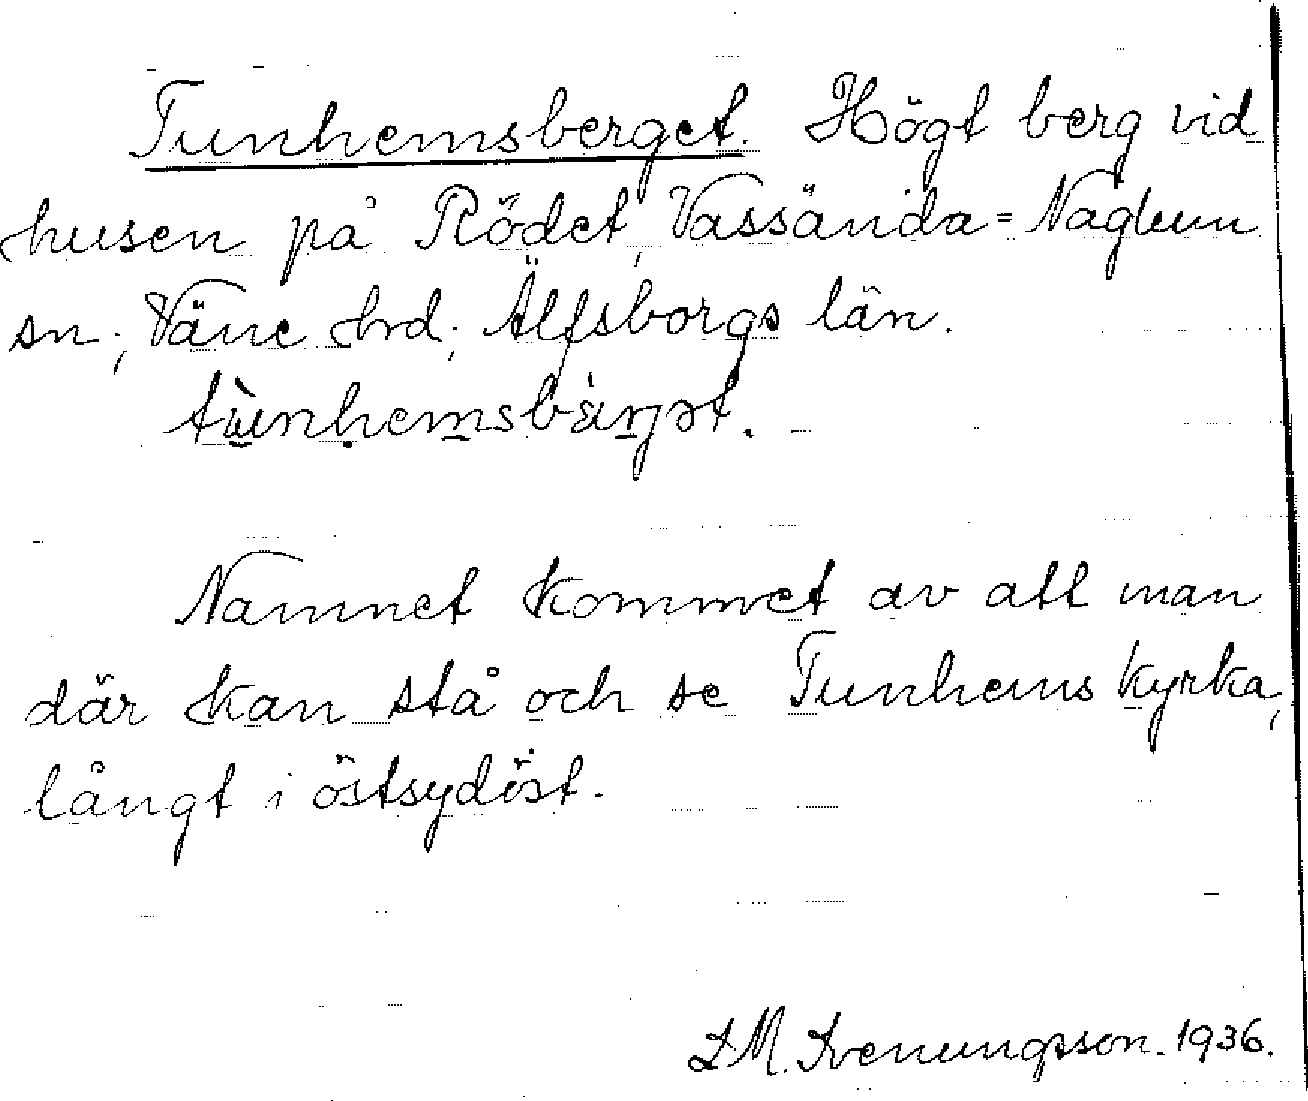 Tunhemsberget. Högt berg vid
husen på Rödet, Vassända=Naglum
sn; Väne hrd; Älfsborgs län.
tùnhemsbärjət.
Namnet kommet av att man
där kan stå och se Tunhems kyrka,
långt i östsydöst.
L M. Svenungsson. 1936.